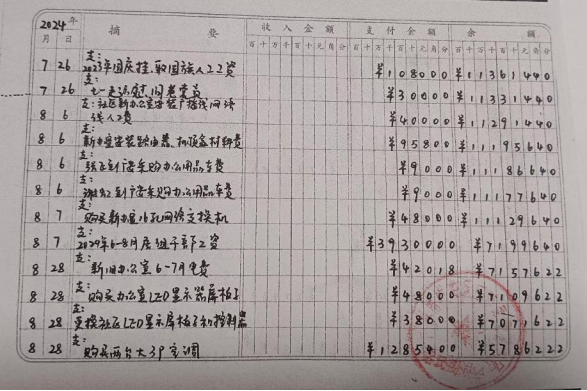 2024年 摘要 收入金额 支付金额 余额
月 日 百十万千百十元角分 百十万千百十元角分 百十万千百十元角分
7 26 支:2023年国庆挂、取国旗人工资 ¥108000 ¥11361440
7 26 支:七一走访慰问老党员 ¥30000 ¥11331440
8 6 支:社区新办公室安装广播线网络线人工费 ¥40000 ¥11291440
8 6 支: ¥95800 ¥11195640
8 6 支: 到广客采购办公用品车费 ¥9000 ¥11186640
8 6 支: 到广客采购办公用品车费 ¥9000 ¥11177640
8 7 支:购买新办室16孔网络交换机 ¥48000 ¥11129640
8 7 支:2024年6-8月居组干部工资 ¥3930000 ¥7199640
8 28 支:新旧办公室6-7月电费 ¥42018 ¥7157622
8 28 支:购买办公室LED显示器屏板子 ¥48000 ¥7109622
8 28 支:更换社区LED显示屏板子和控制器 ¥38000 ¥7071622
8 28 支:购买两台大3P空调 ¥1285400 ¥5786222